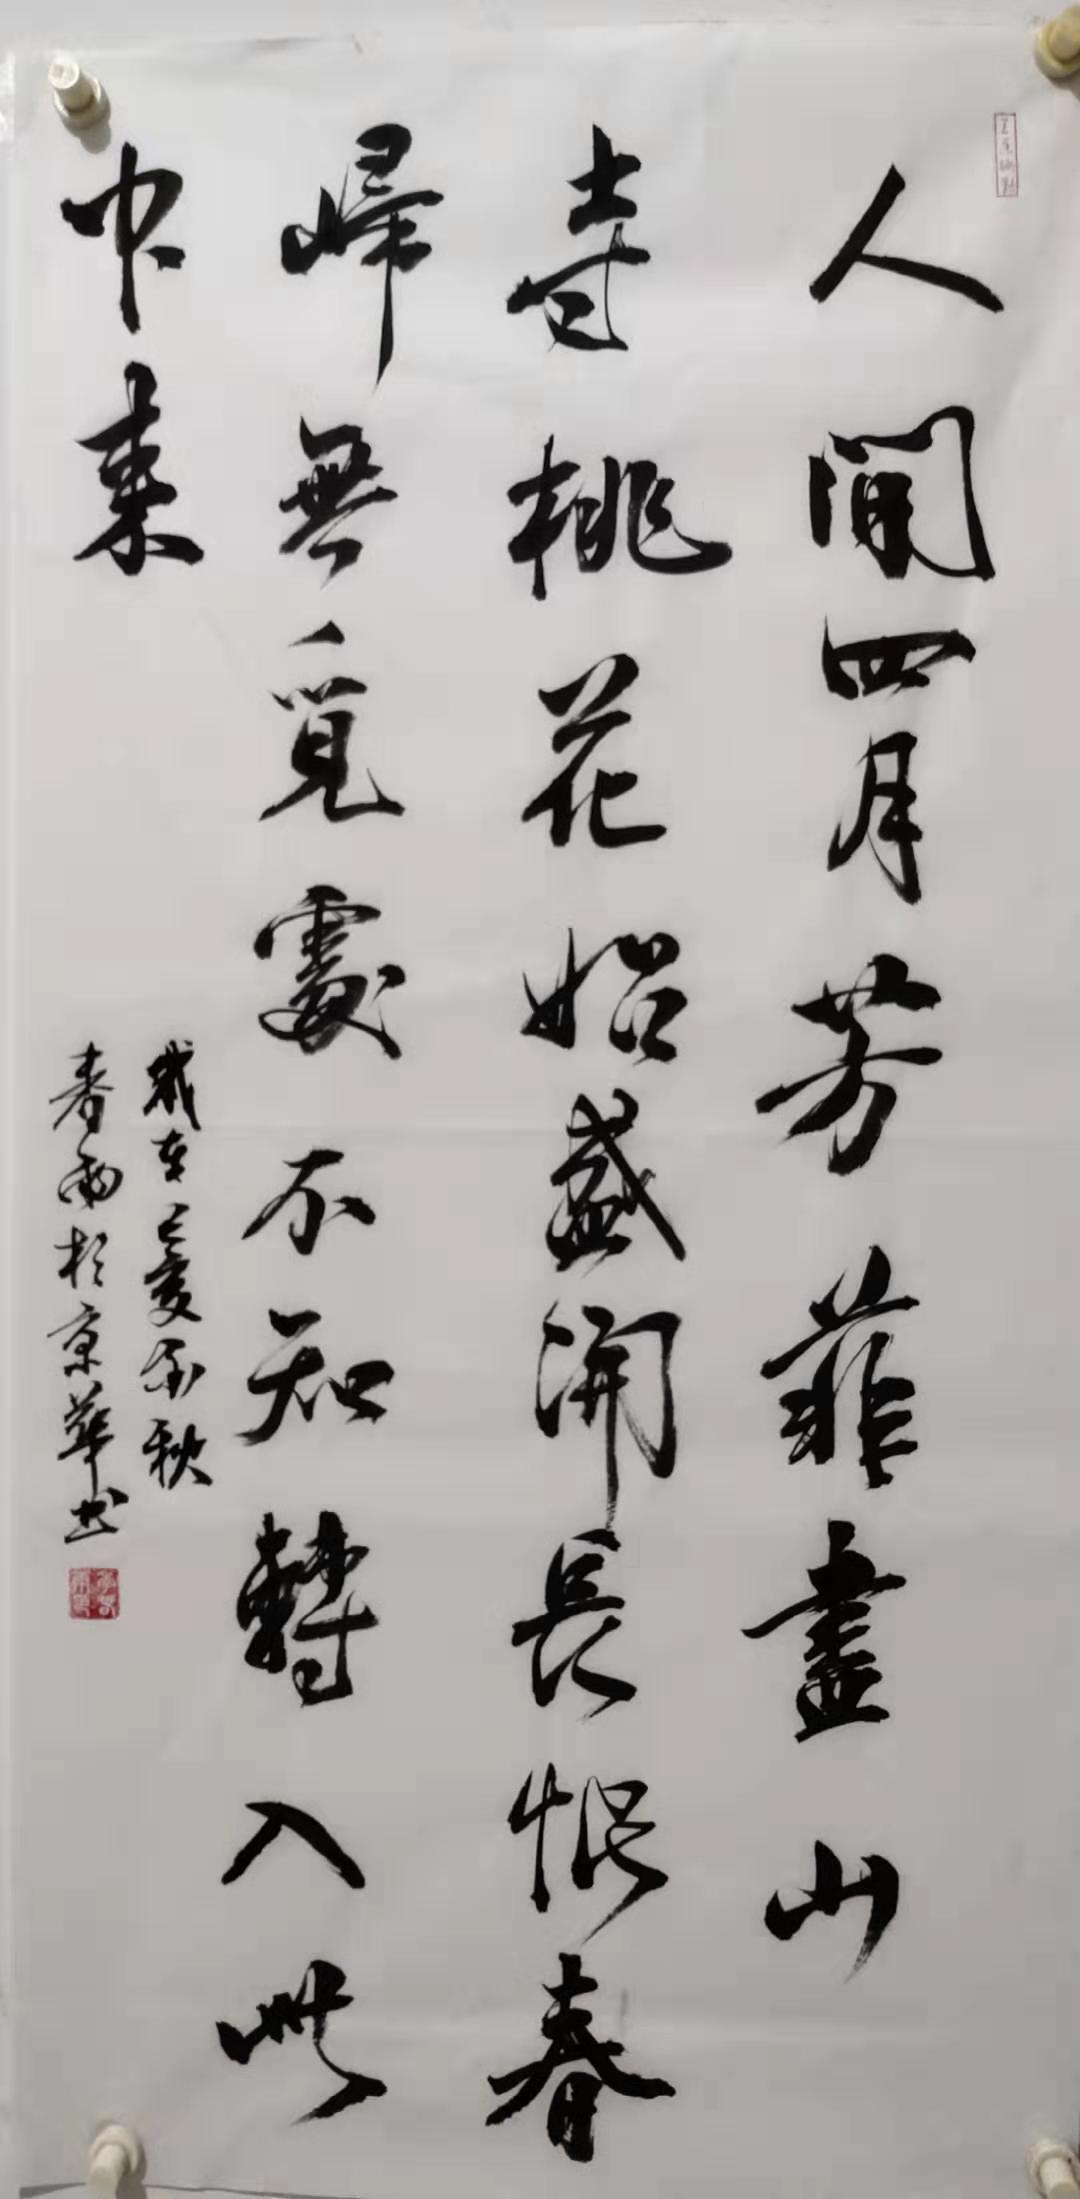 人間四月芳菲盡山
寺桃花始盛開長恨春
歸無覓處不知轉入此
中来
歲在己亥金秋
春雨於京華书